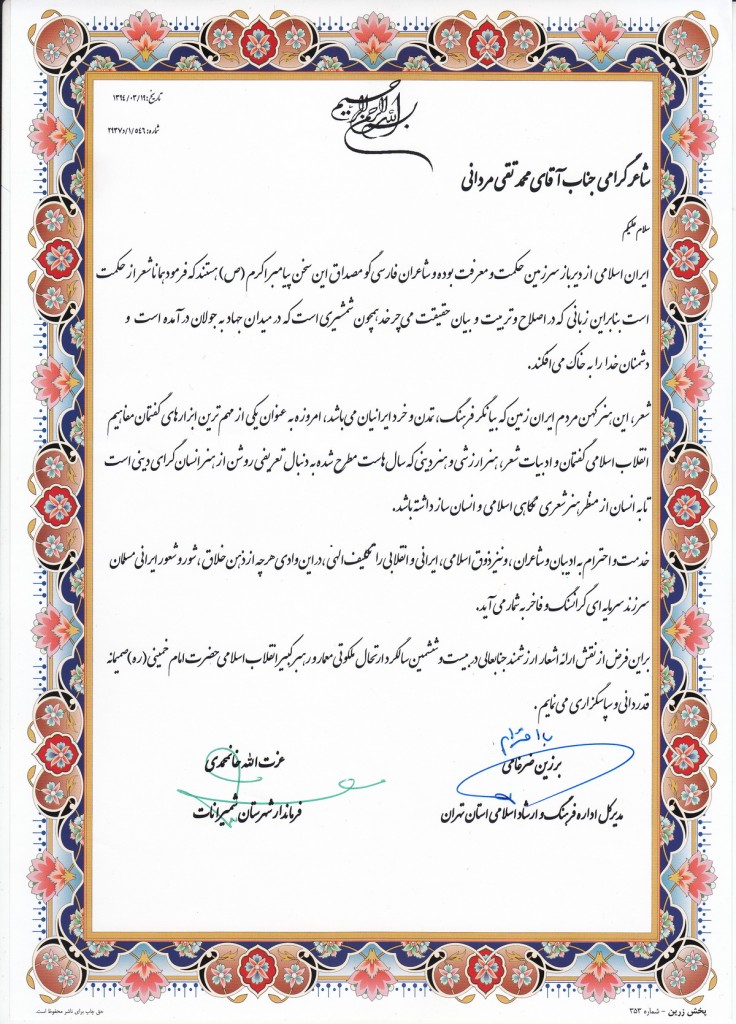 بسم الله الرحمن الرحیم
تاریخ: ۱۳۹۴/۰۳/۱۹
شماره: ۲۹۳۷د/۱/۵۴۶
شاعر گرامی جناب آقای محمد تقی مردانی
سلام علیکم
ایران اسلامی از دیرباز سرزمین حکمت و معرفت بوده و شاعران فارسی گو مصداق این سخن پیامبر اکرم (ص) هستند که فرمود همانا شعر از حکمت
است بنابراین زبانی که در اصلاح و تربیت و بیان حقیقت می چرخد همچون شمشیری است که در میدان جهاد به جولان در آمده است و
دشمنان خدا را به خاک می افکند.
شعر، این هنر کهن مردم ایران زمین که بیانگر فرهنگ، تمدن و خرد ایرانیان می باشد، امروزه به عنوان یکی از مهم ترین ابزارهای گفتمان مفاهیم
انقلاب اسلامی گفتمان و ادبیات شعر، هنر ارزشی و هنر دینی که سال هاست مطرح شده به دنبال تعریفی روشن از هنر انسان گرای دینی است
تا به انسان از منظر هنر شعری نگاهی اسلامی و انسان ساز داشته باشد.
خدمت و احترام به ادیبان و شاعران، و نیز ذوق اسلامی، ایرانی و انقلابی را تکلیف الهی، در این وادی هرچه از ذهن خلاق، شور و شعور ایرانی مسلمان
سر زند سرمایه ای گرانسنگ و فاخر به شمار می آید.
براین فرض از نقش ارائه اشعار ارزشمند جنابعالی در بیست و ششمین سالگرد ارتحال ملکوتی معمار و رهبر کبیر انقلاب اسلامی حضرت امام خمینی (ره) صمیمانه
قدردانی و سپاسگزاری می نمایم.
با احترام
برزین ضرغامی
مدیرکل اداره فرهنگ و ارشاد اسلامی استان تهران
عزت الله خانمحمدی
فرماندار شهرستان شمیرانات
پخش زرین - شماره ۳۵۳
حق چاپ برای ناشر محفوظ است.